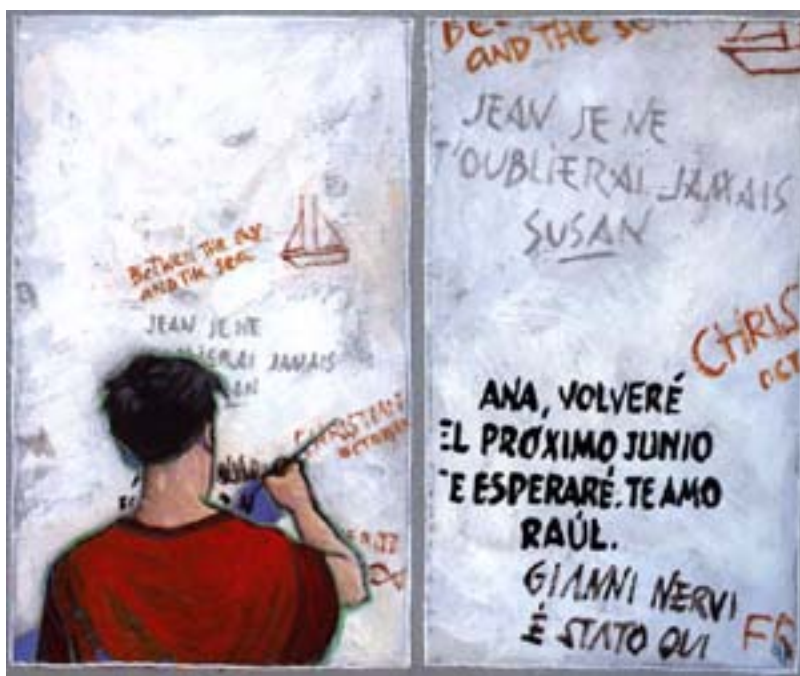 BETWEEN THE
AND THE SEA
JEAN JE NE
JAMAIS
CHRISTIAN
OCTOBER
AND THE
JEAN JE NE
T'OUBLIERAI JAMAIS
SUSAN
CHRIS
OCT
ANA, VOLVERÉ
EL PRÓXIMO JUNIO
TE ESPERARÉ. TE AMO
RAÚL.
GIANNI NERVI
É STATO QUI